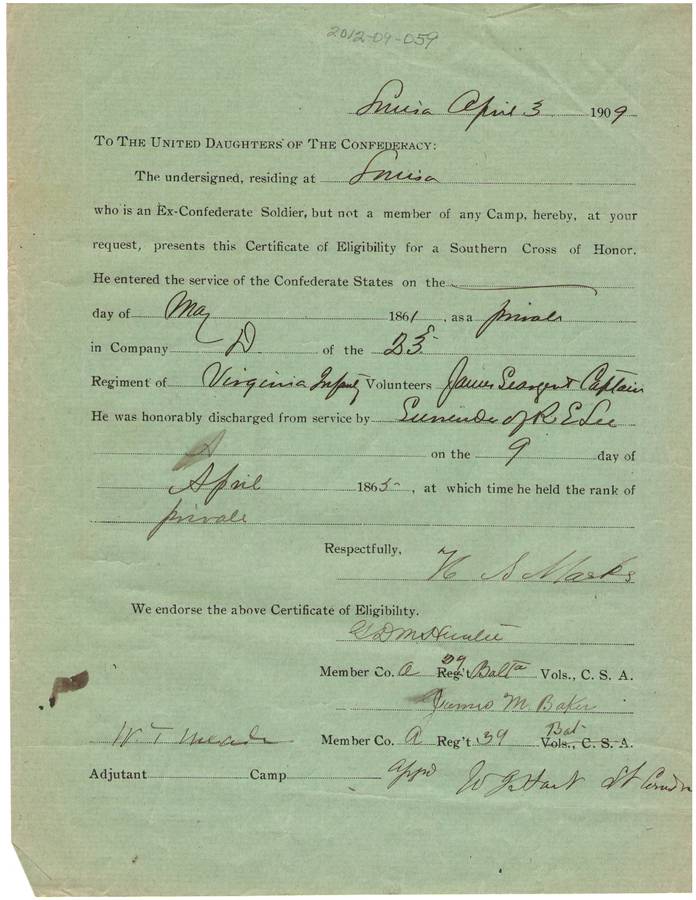 2012-09-059
Louisa April 3 1909
TO THE UNITED DAUGHTERS OF THE CONFEDERACY:
The undersigned, residing at Louisa
who is an Ex-Confederate Soldier, but not a member of any Camp, hereby, at your
request, presents this Certificate of Eligibility for a Southern Cross of Honor.
He entered the service of the Confederate States on the
day of May 1861, as a private
in Company D of the 23
Regiment of Virginia Infty Volunteers James Seargent Captain
He was honorably discharged from service by Surrender of R E Lee
on the 9 day of
April 1865, at which time he held the rank of
private
Respectfully,
H S Marks
We endorse the above Certificate of Eligibility.
Member Co. A 39 Reg't Vols., C. S. A.
James M. Baker
W T Meade Member Co. A Reg't 39 Bat Vols., C. S. A.
Adjutant Camp appd